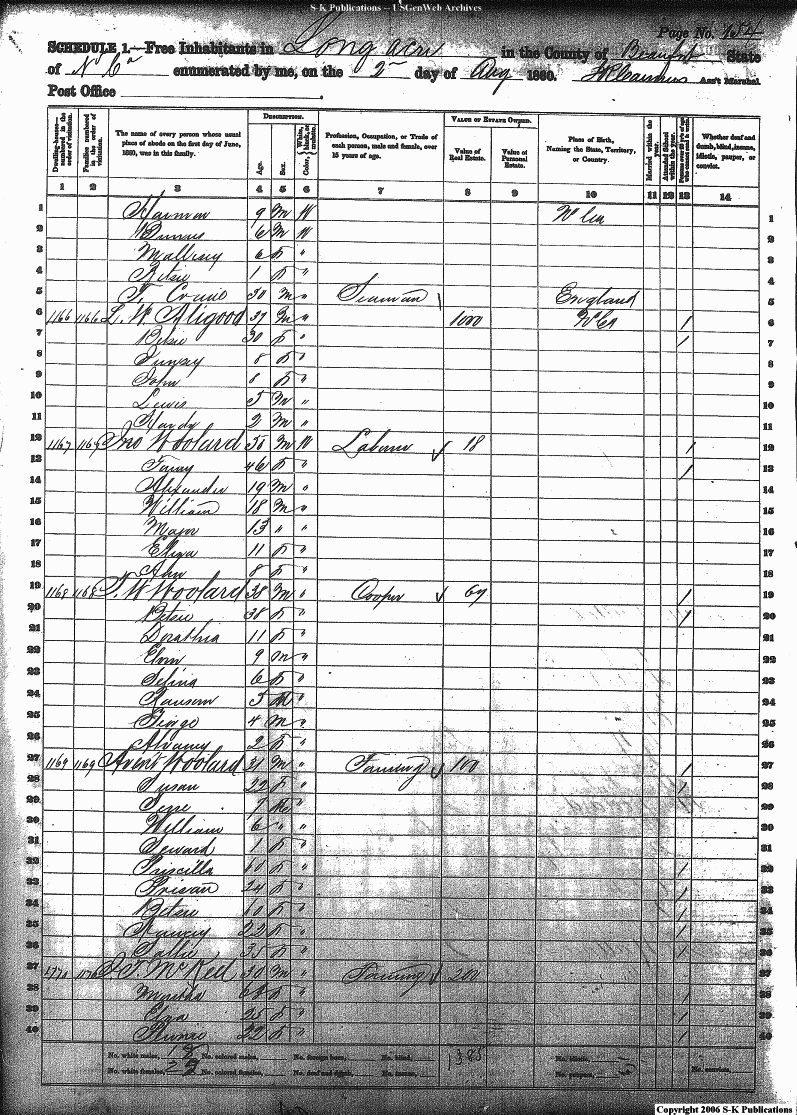 S-K Publications -- USGenWeb Archives
Page No. 154
SCHEDULE 1.—Free Inhabitants in Long acre in the County of Beaufort State
of N Ca enumerated by me, on the 2 day of Aug 1860. Ass't Marshal.
Post Office
Dwelling-houses— numbered in the order of visitation. Families numbered in the order of visitation. The name of every person whose usual place of abode on the first day of June, 1860, was in this family. DESCRIPTION. Age. Sex. Color, White, black, or mulatto. Profession, Occupation, or Trade of each person, male and female, over 15 years of age. VALUE OF ESTATE OWNED. Value of Real Estate. Value of Personal Estate. Place of Birth, Naming the State, Territory, or Country. Married within the year. Attended School within the year. Persons over 20 y'rs of age who cannot read & write. Whether deaf and dumb, blind, insane, idiotic, pauper, or convict.
1 2 3 4 5 6 7 8 9 10 11 12 13 14
1 Harmon 9 M W N Ca 1
2 6 M W 2
3 6 f " 3
4 Betsie 1 f " 4
5 30 M " Seaman England 5
6 1166 1166 L. W Aligood 37 M " 1000 N Ca / 6
7 Betsie 30 f " / 7
8 8 f " 8
9 John 8 f " 9
10 Lewis 5 M " 10
11 Hardy 2 M " 11
12 1167 1167 Jno Woolard 50 M W Laborer 18 / 12
13 Fanny 46 f " / 13
14 Alexander 19 M " 14
15 William 18 M " 15
16 Major 13 " " 16
17 Eliza 11 f " 17
18 Ann 8 f " 18
19 1168 1168 S. W Woolard 38 M " Cooper 67 / 19
20 Betsie 38 f " / 20
21 Dorathia 11 f " 21
22 9 M " 22
23 Selina 6 f " 23
24 Ransom 5 M " 24
25 George 4 M " 25
26 2 f " 26
27 1169 1169 Woolard 31 M " Farming 100 / 27
28 Susan 22 F " / 28
29 Jesse 7 M " / 29
30 William 6 " " 30
31 Seward 1 f " 31
32 Priscilla 60 f " / 32
33 24 f " / 33
34 Betsie 10 f " / 34
35 Nancy 22 f " / 35
36 Sallie 35 f " / 36
37 1170 1170 McKeel 30 M " Farming 200 37
38 68 f " / 38
39 Eliza 25 f " / 39
40 22 f " / 40
No. white males, 18 No. colored males, No. foreign born, No. blind, 1385 No. idiotic,
No. white females, 22 No. colored females, No. deaf and dumb, No. insane, No. paupers, No. convicts,
Copyright 2006 S-K Publications